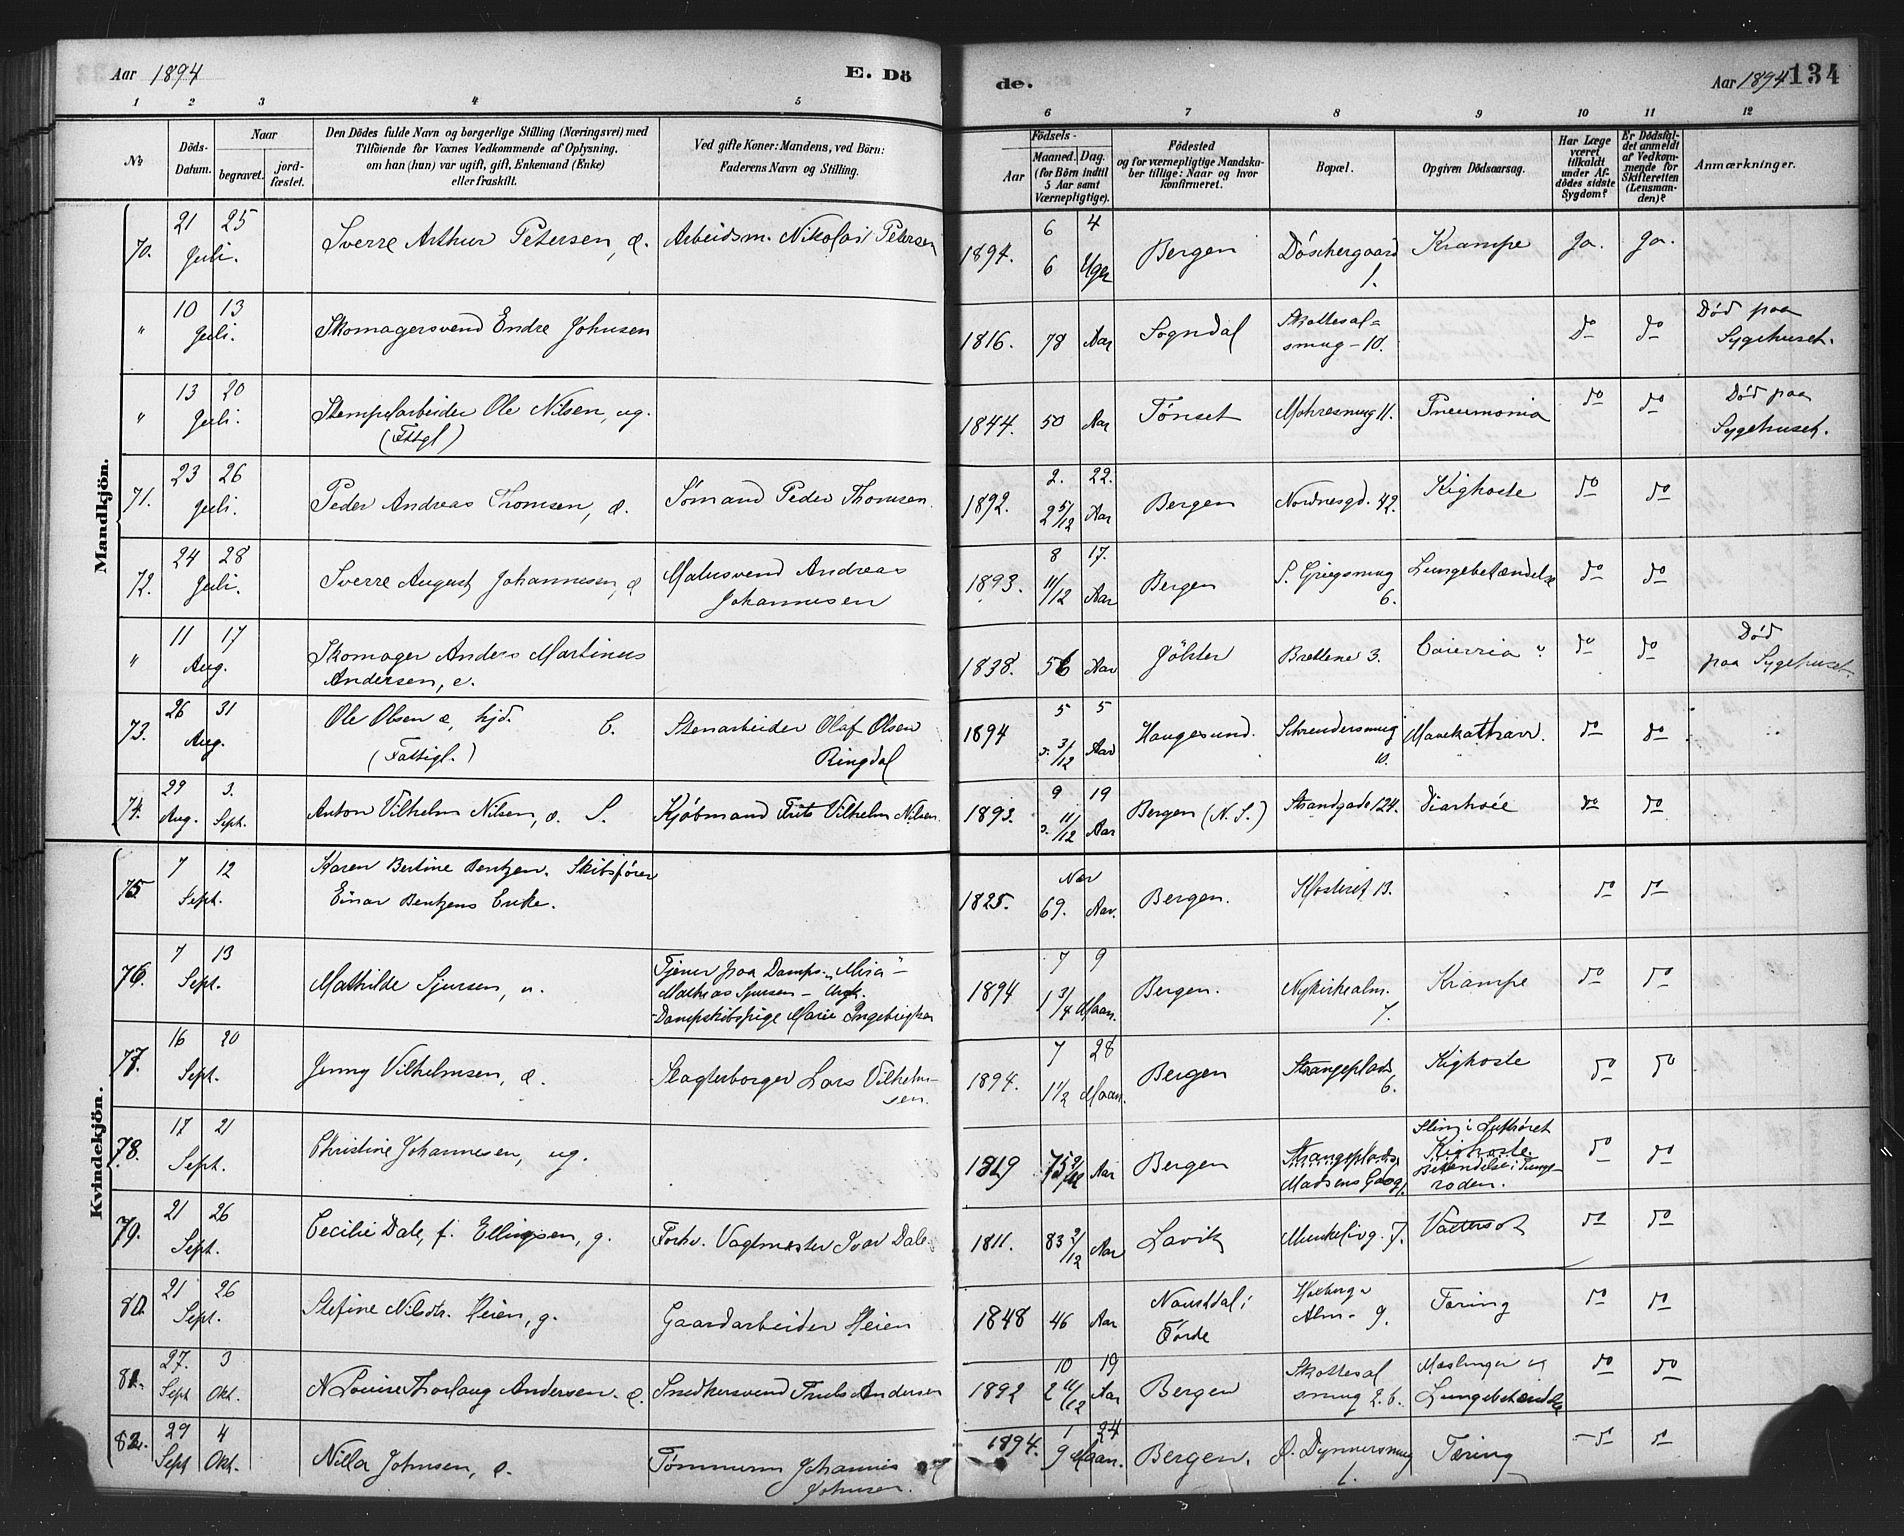 Aar 1894 E. Dö de. Aar 1894 134
1 2 3 4 5 6 7 8 9 10 11 12
No
Döds-Datum.
Naar
begravet.
jord-fæstet.
Den Dödes fulde Navn og borgerlige Stilling (Næringsvei) med
Tilföiende for Voxnes Vedkommende af Oplysning,
om han (hun) var ugift, gift, Enkemand (Enke)
eller fraskilt.
Ved gifte Koner: Mandens, ved Börn:
Faderens Navn og Stilling.
Födsels-
Aar
Maaned. Dag.
(for Börn indtil
5 Aar samt
Værnepligtige).
Födested
og for værnepligtige Mandska-
ber tillige: Naar og hvor
konfirmeret.
Bopæl.
Opgiven Dödsaarsag.
Har Læge
været
tilkaldt
under Af-
dödes sidste
Sygdom?
Er Dödsfal-
det anmeldt
af Vedkom-
mende for
Skifteretten
(Lensman-
den)?
Anmærkninger.
Mandkjön.
70. 21 Juli. 25 Sverre Arthur Petersen, æ. Arbeidsm. Nikolai Petersen 1894. 6 4 6 Uger Bergen Döschergaard 1. Krampe Ja. Ja.
" 10 Juli. 13 Skomagersvend Endre Johnsen 1816. 78 Aar Sogndal Skottesal=
smug - 10. do do Död paa
Sygehuset.
" 13 Juli. 20 Stempelarbeider Ole Nilsen, ug.
(Fttgl) 1844. 50 Aar Tönset Mohresmug 11. Pneumonia do do Död paa
Sygehuset.
71. 23 Juli. 26 Peder Andreas Thomsen, æ. Sömand Peder Thomsen. 1892. 2. 22. 2 5/12 Aar Bergen Nordnesgd. 42. Kighoste do do
72. 24 Juli. 28 Sverre August Johannesen, æ Malersvend Andreas
Johannesen 1893. 8 17. 11/12 Aar Bergen S. Griegsmug
6. Lungebetændelse do do
" 11 Aug. 17 Skomager Anders Martinus
Andersen, e. 1838. 56 Aar Jölster Brettene 3. do do Död
paa Sygehuset.
73. 26 Aug. 31 Ole Olsen æ, hjd. C.
(Fattigl.) Stenarbeider Olaf Olsen
Ringdal 1894 5 5 3/12 Aar Haugesund. Schreudersmug
10. Mavekatharr. do do
74. 29 Aug. 3. Sept. Anton Vilhelm Nilsen, æ. S. Kjöbmand Frits Vilhelm Nilsen. 1893. 9 19 11/12 Aar Bergen (N. S.) Strandgade 124. Diarhoée do do
Kvindekjön.
75 7 Sept. 12 Karen Bertine Bentzen. Skibsförer
Einar Bentzens Enke. 1825. Nær
69. Aar. Bergen. Klosteret 13. do do
76. 7 Sept. 13 Mathilde Sjursen, u. Tjener paa Damps. "Mira"
Mathias Sjursen - Ungk.
-Dampskibspige Marie Ingebrigtsen 1894 7 9 1 3/4 Maan. Bergen. Nykirkealm.
7. Krampe do do
77. 16 Sept. 20 Jenny Vilhelmsen, æ. Slagterborger Lars Vilhelm-
sen. 1894. 7 28 1 1/2 Maan. Bergen Strangeplads
6. Kighoste do do
78. 17 Sept. 21 Christine Johannesen, ug. 1819 75 Aar Bergen Strangeplads.
Madsens Gaag. Slim i Luftröret
Kighoste. do do
79. 21 Sept. 26 Cecilie Dale, f. Ellingsen, g. Forhv. Vagtmester Ivar Dale 1811. 83 2/12 Aar Lavik Munkelivg. 7. Vattersot do do
80. 21 Sept. 26 Stefine Nilsdtr. Heien, g. Gaardarbeider Heien 1848 46 Aar Naustdal i
Förde Holbergs
Alm- 9. Tæring do do
81. 27. Sept 3 Okt. N Louise Thorlaug Andersen. æ. Snedkersvend Truls Andersen 1892 10 19 2 11/12 Aar Bergen Skottesal
smug 2.b. Mæslinger og
Lungebetændelse do do
82. 29 Sept 4 Okt. Nilla Johnsen, æ. Tömmerm Johannes
Johnsen. 1894. 1 24 9 Maan. Bergen. Ö. Dynnersmug
1. Tæring do do